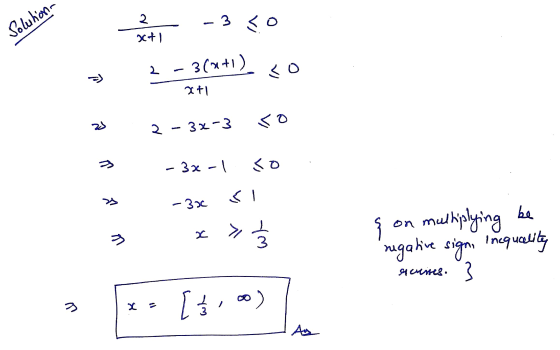 Solution-
2/(x+1) - 3 ≤ 0
⇒ (2 - 3(x+1))/(x+1) ≤ 0
⇒ 2 - 3x - 3 ≤ 0
⇒ -3x - 1 ≤ 0
⇒ -3x ≤ 1
⇒ x ≥ 1/3
{ on multiplying be
negative sign, inequality
}
⇒ x = [1/3, ∞)
Ans